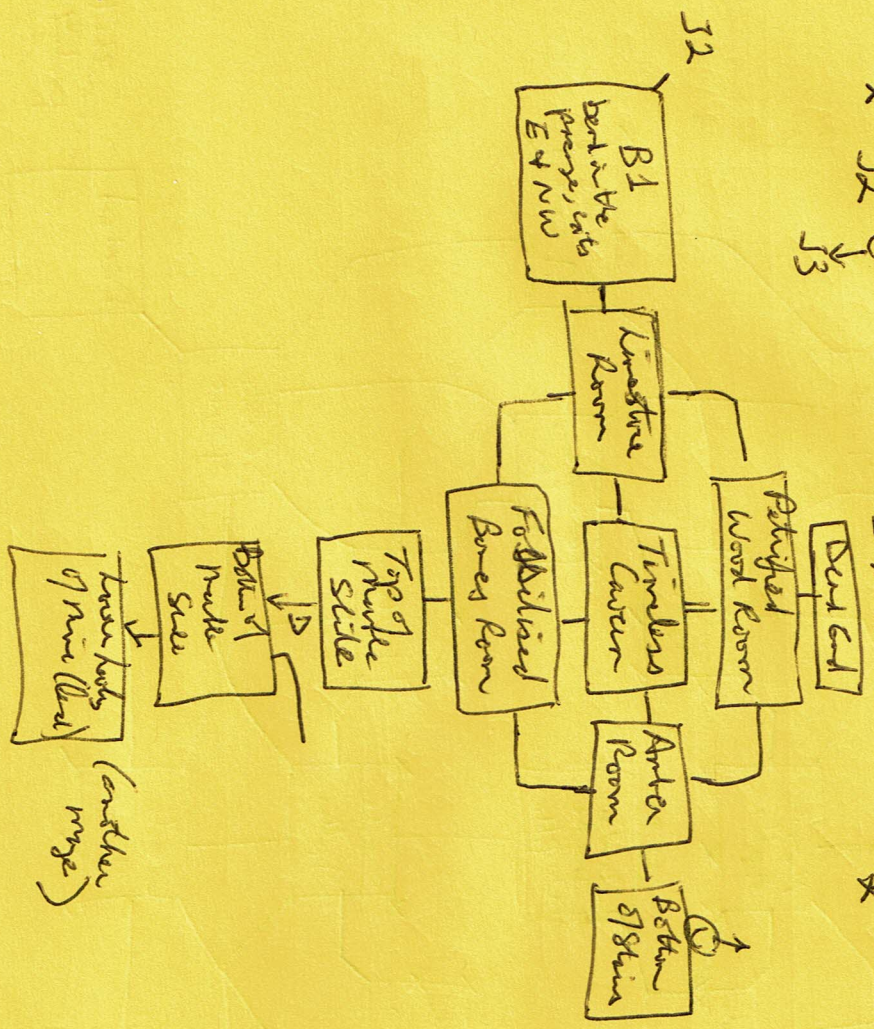 J2
J2
J3
B1
bend in the
passage, exits
E & NW
Limestone
Room
Dead End
Petrified
Wood Room
Timeless
Cavern
Fossilised
Bones Room
Amber
Room
Bottom
of Stairs
U
Top of
Marble
Slide
D
Bottom of
Marble
Slide
of Mine (lead)
(another
maze)